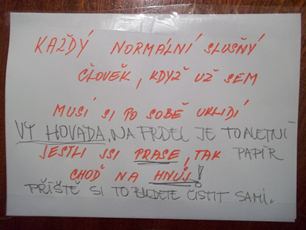 KAŽDÝ NORMÁLNÍ SLUŠNÝ
ČLOVĚK, KDYŽ UŽ SEM
MUSÍ SI PO SOBĚ UKLIDÍ
VY HOVADA, NA PRDEL JE TOALETNÍ
PAPÍR
JESTLI JSI PRASE, TAK
CHOĎ NA HNŮJ!
PŘÍŠTĚ SI TO BUDETE ČISTIT SAMI.